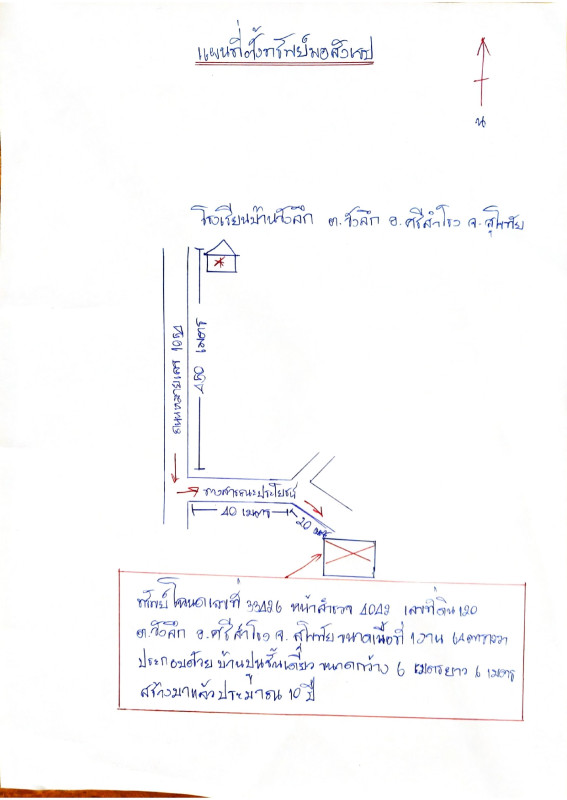 แผนที่ตั้งทรัพย์พอสังเขป
น
โรงเรียนบ้านวังลึก ต.วังลึก อ.ศรีสำโรง จ.สุโขทัย
ถนนหมายเลข
เมตร
ทางสาธารณะประโยชน์
40 เมตร
20 เมตร
ทรัพย์โฉนดเลขที่ 33426 หน้าสำรวจ 4042 เลขที่ดิน 120
ต.วังลึก อ.ศรีสำโรง จ.สุโขทัย ขนาดเนื้อที่ 1 งาน
ประกอบด้วย บ้านปูนชั้นเดียว ขนาดกว้าง 6 เมตร ยาว 6 เมตร
สร้างมาแล้วประมาณ 10 ปี